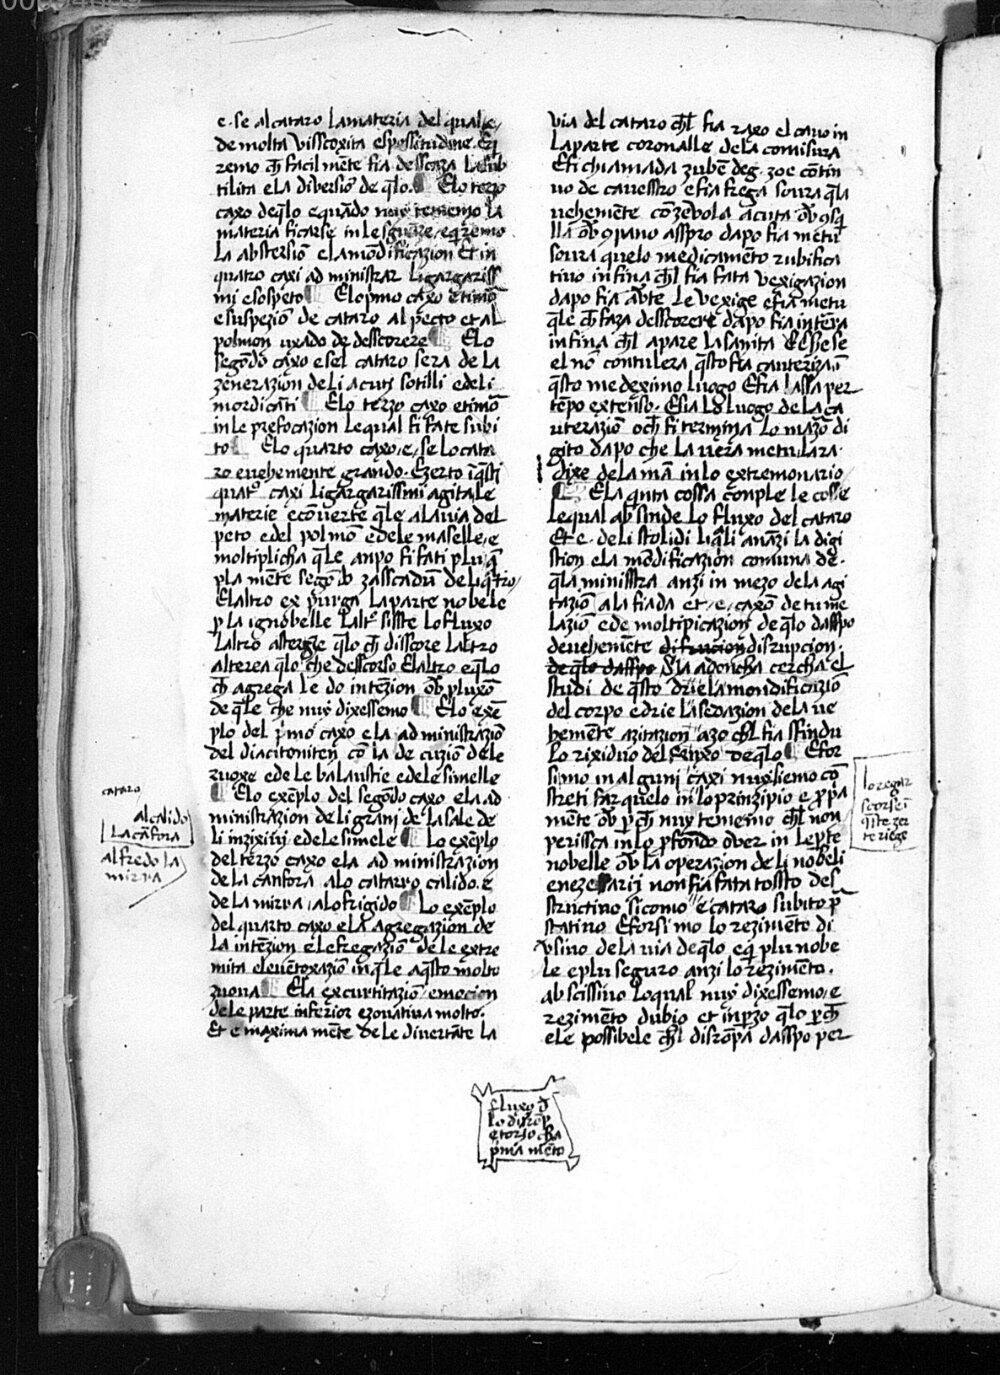 e. se al cataro la materia del qual e
de molta visscoxita e spossitudine. Eq̄
remo ch̄ facilmēte fia desscoza la sub
tilita e la diversiō de q̄lo. E lo terzo
caxo de q̄lo e quādo nuy tememo la
materia ficarse in le
la abstersiō e la mōdificazion Et in
quatro caxi administrar li gargariss
mi e sospeto E lo p̄mo caxo e timō
e suspeziō de cataro al pecto et al
polmon uxado de desscorere E lo
segōdo caxo e se l cataro sera de la
zenerazion de li acuti sotilli e de li
mordicāti E lo terzo caxo e timō
in le prefocazion le qual fi fate subi
to E lo quarto caxo, e, se lo cata
ro e uehemente grando. Ezerto ī q̄sti
quatº caxi li gargarissmi agita le
materie e cōuerte q̄le a la via del
peto e del polmō e de le maselle, e
moltiplicha q̄le anpo fi fati plu q̄
p la mēte segōdo zasscadū de li q̄tro
El altro ex purga la parte nobele
p la ignobelle L altº sisste lo fluxo
L altro astergie q̄lo ch̄ disscore L altro
alterea q̄lo che desscorso El altro e q̄lo
ch̄ agrega le do intēzion ob̄ pluxō
de q̄le che nuy dixessemo E lo exē
plo del p̄mo caxo e la administraziō
del diacitoniten cō la decuziō de le
ruoxe e de le balaustie e de le simelle
E lo exēplo del segōdo caxo e la ad
ministrazion de li grani de la sale de
li inzixivi e de le simele Lo exēplo
del terzo caxo e la administrazion
de la canfora a lo catarro calido. e
de la mirra, a lo frigido Lo exēplo
del quarto caxo e la agregazion de
la intēzion e le fregaziō de le extre
mita e le uētoxaziō in q̄le a q̄sto molto
zuova E la excurtitaziō, emocion
de le parte inferior ezovativa molto.
Et e maxima mēte de le divertāte la
via del cataro ch̄l fia raxo el cavo in
la parte coronalle de la comisura
E fi chiamada zubē deg. zoe cōtin
uo de cauessro e fia frega soura q̄la
uehemēte cō zevola acuta
lla ob̄ 9 pano asspro da po fia metu
soura quelo medicamēto rubifica
tivo in fina ch̄l fia fata vexigazion
da po fia avte le vexige e fia metu
q̄le ch̄ faza desscorere da po fia intēra
in fina ch̄l apare la sanita E esse se
el nō contulera q̄sto fia cauteriza ī
q̄sto medeximo luogo E fia lassa per
tēpo extēnso. E sia lo luogo de la ca
uterazio och̄ fi termina lo mazō di
gito da po che la uera metu lara
dixe de la mā in lo extremo nario
E la q̄nta cossa conple le cosse
le qual absinde lo fluxo del cataro
Et e. de li stolidi li q̄li anāzi la digi
stion e la mōdificazion comuna de.
q̄la ministra anzi in mezo de la agi
taziō a la fiada et, e, caxō de tume
lazion e de moltipicazion de q̄lo dasspo
de uehemēte difrucion disrupcion.
de q̄lo dasspo Sia adoncha cercha el
studi de q̄sto drie la mondificaziō
del corpo e drie la sedazion de la ue
hemēte azitazion azo ch̄l fia ssfindu
lo rixiduo del fluxo de q̄lo E for
simo in alguni caxi nuy siemo cō
streti far quelo in lo prinzipio e p̄pa
mēte ob̄ p̄ ch̄ nuy tememo ch̄l non
perissca in lo p̄fondo over in le p̄te
nobelle ob̄ la operazion de li nobeli
e nezesarij non fia fata tossto del
structivo sicomo e cataro subito p̄
statino E forsimo lo rezimēto di
vsivo de la uia de q̄lo e q̄ plu nobe
le e plu seguro anzi lo rezimēto.
abscissivo lo qual nuy dixessemo, e
rezimēto dubio et inp̄zo q̄lo p̄ ch̄
el e possibele ch̄l disropā dasspo per
cataro
al calido
la cāfora
al fredo la
mirra
lo regar
scorse ī
q̄ste zer
te riege
fluxo d̄
lo disrop̄
e torso cha
p̄mia mēto